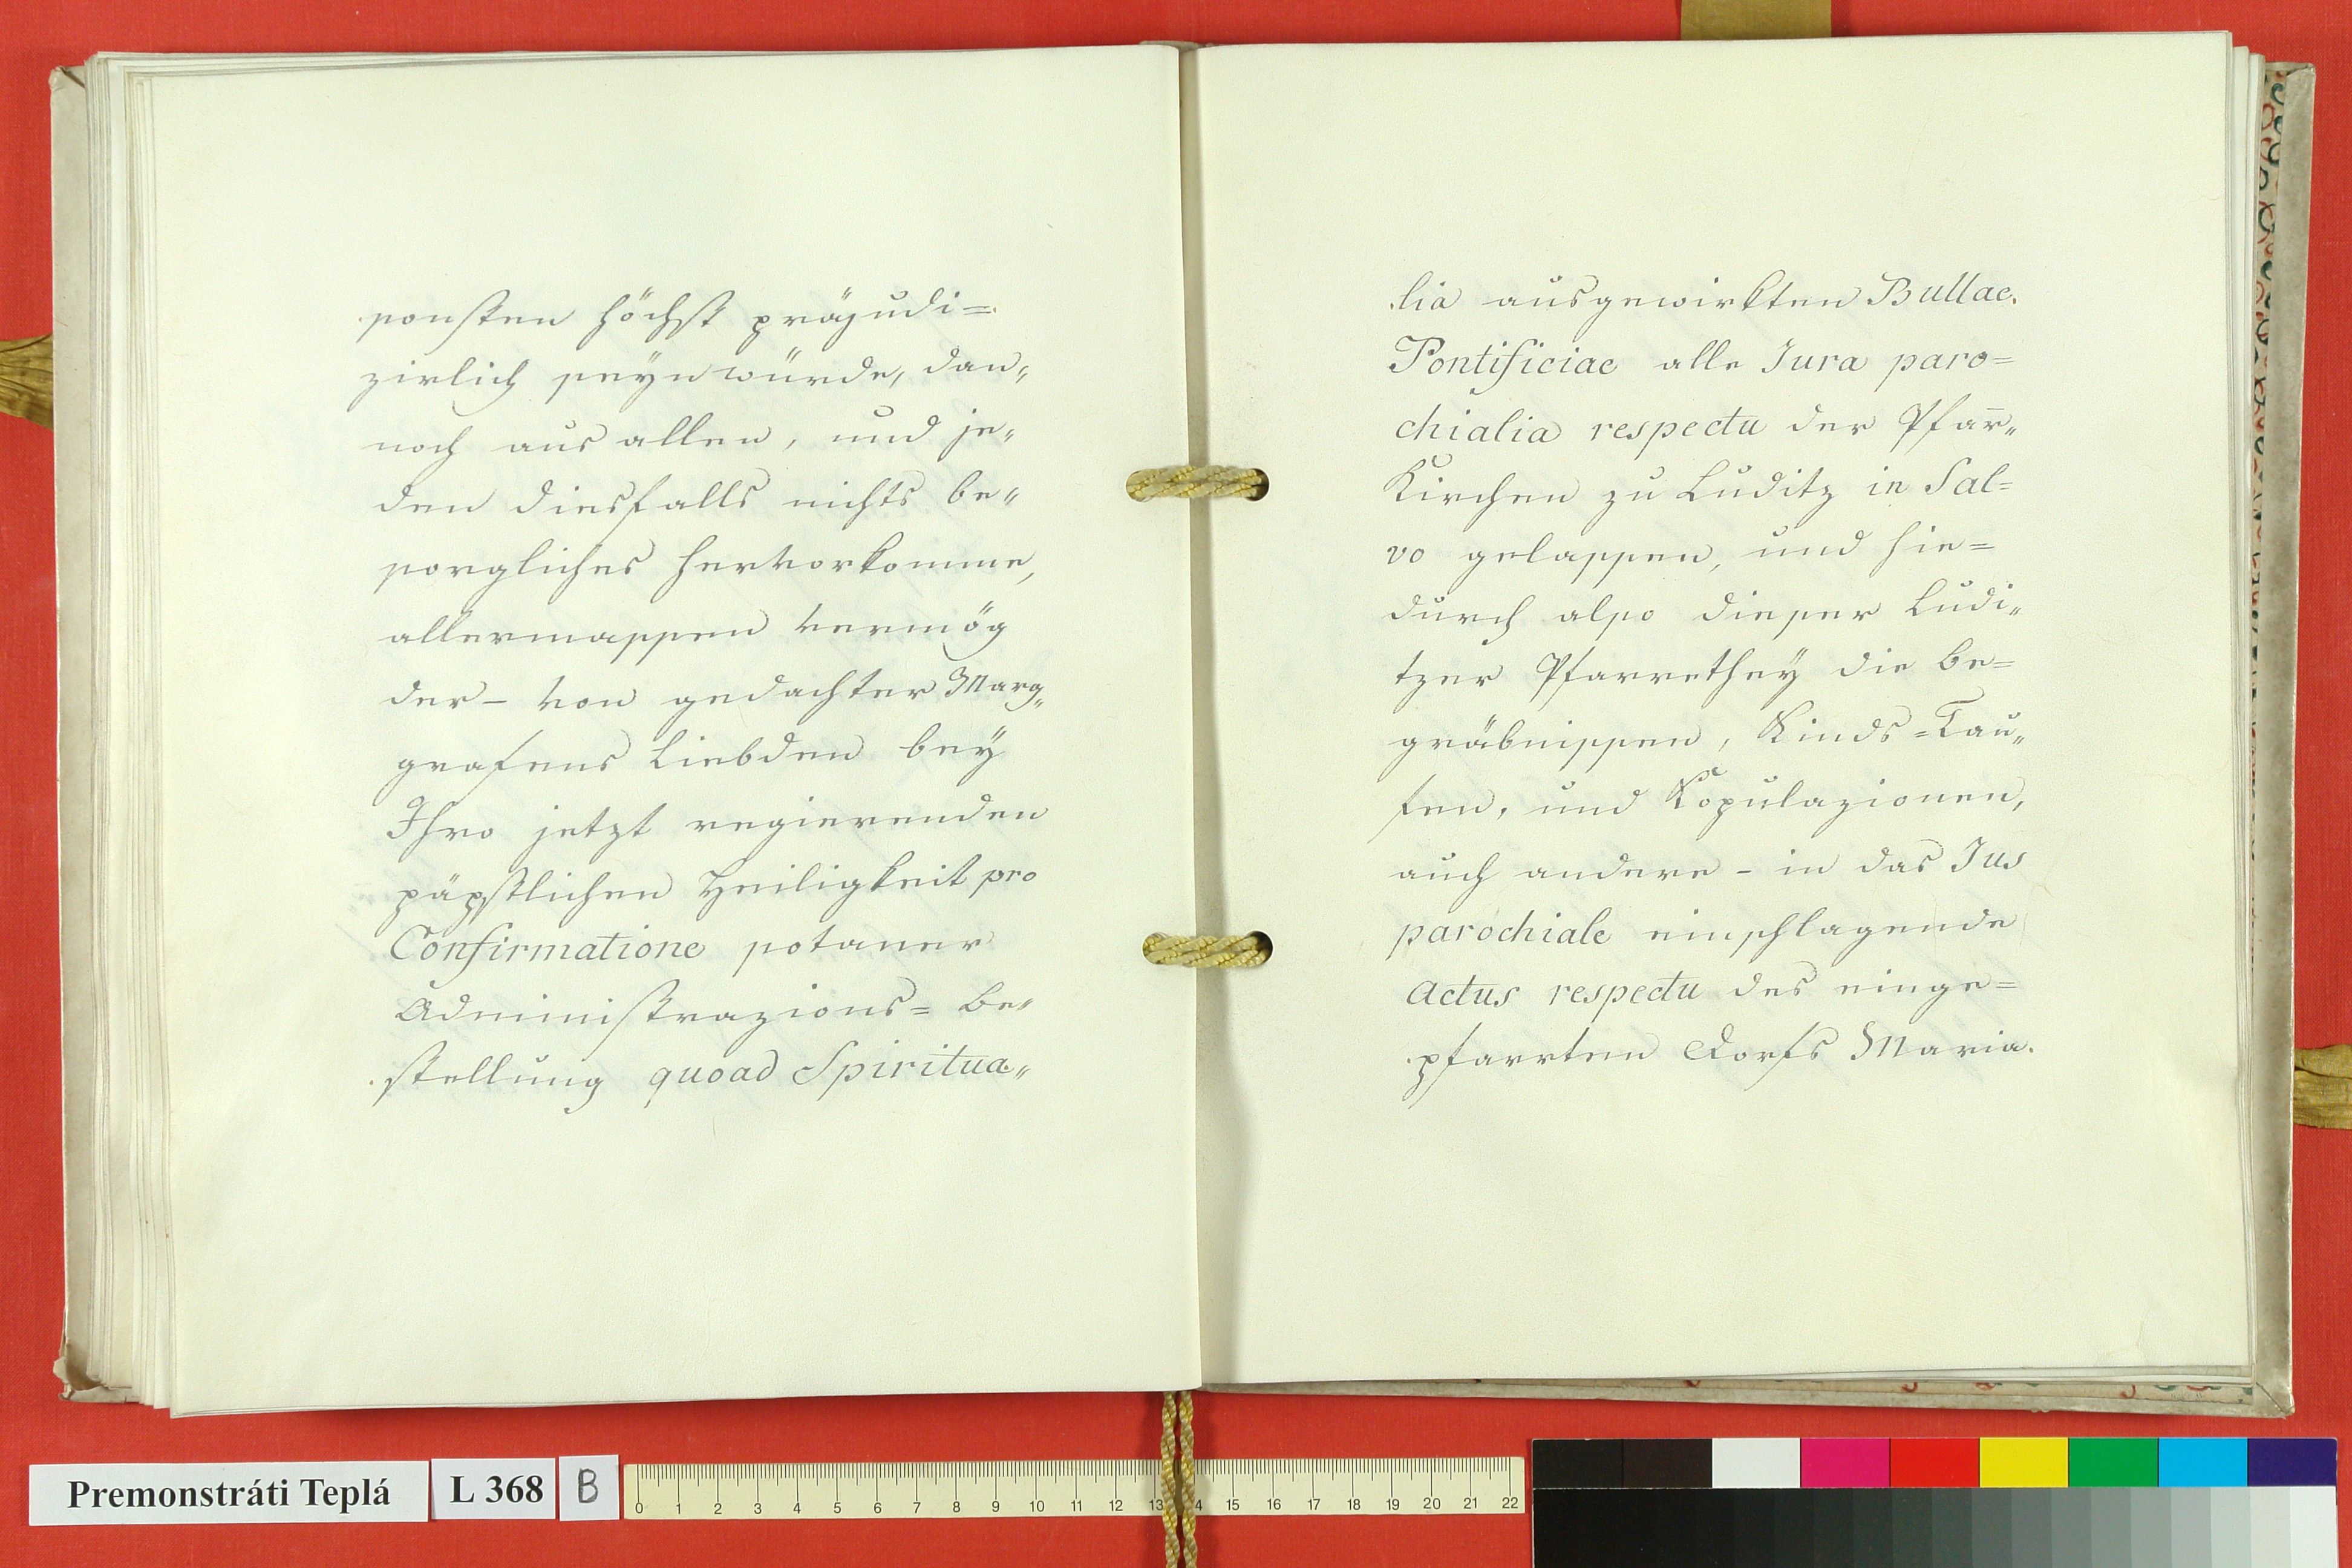 sonsten höchst präjudi=
zirlich seyn würde, dan„
noch aus allen, und je„
den diesfalls nichts be„
sorgliches hervorkomme,
allermassen vermög
der – von gedachter Marg„
grafens Liebden bey
Ihro jetzt regierenden
päpstlichen Heiligkeit pro
Confirmatione sotaner
Administrazions= Be„
stellung quoad Spiritua„
lia ausgewirkten Bullae
Pontificiae alle Jura paro=
chialia respectu der Pfar̄„
Kirchen zu Luditz in Sal=
vo gelassen, und hie=
durch also dieser Ludi„
tzer Pfarrethey die Be=
gräbnissen, Kinds=Tau„
fen, und Kopulazionen,
auch andere – in das Jus
parochiale einschlagende
Actus respectu des einge=
pfarrten Dorfs Maria.
Premonstráti Teplá
L 368
B
0 1 2 3 4 5 6 7 8 9 10 11 12 13 14 15 16 17 18 19 20 21 22